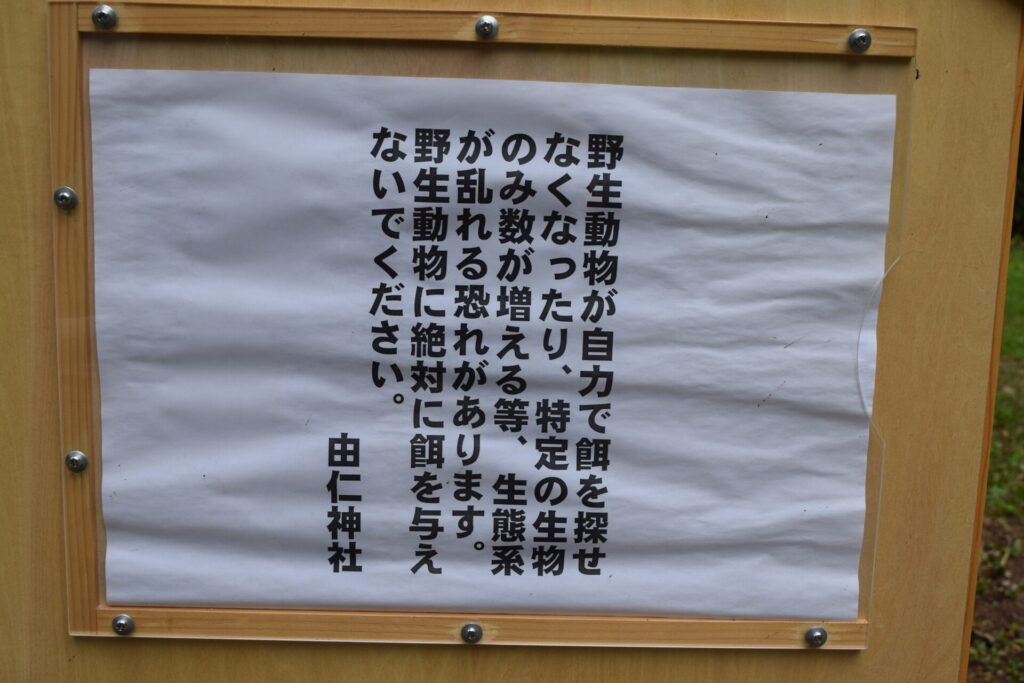 野生動物が自力で餌を探せ
なくなったり、特定の生物
のみ数が増える等、生態系
が乱れる恐れがあります。
野生動物に絶対に餌を与え
ないでください。
由仁神社